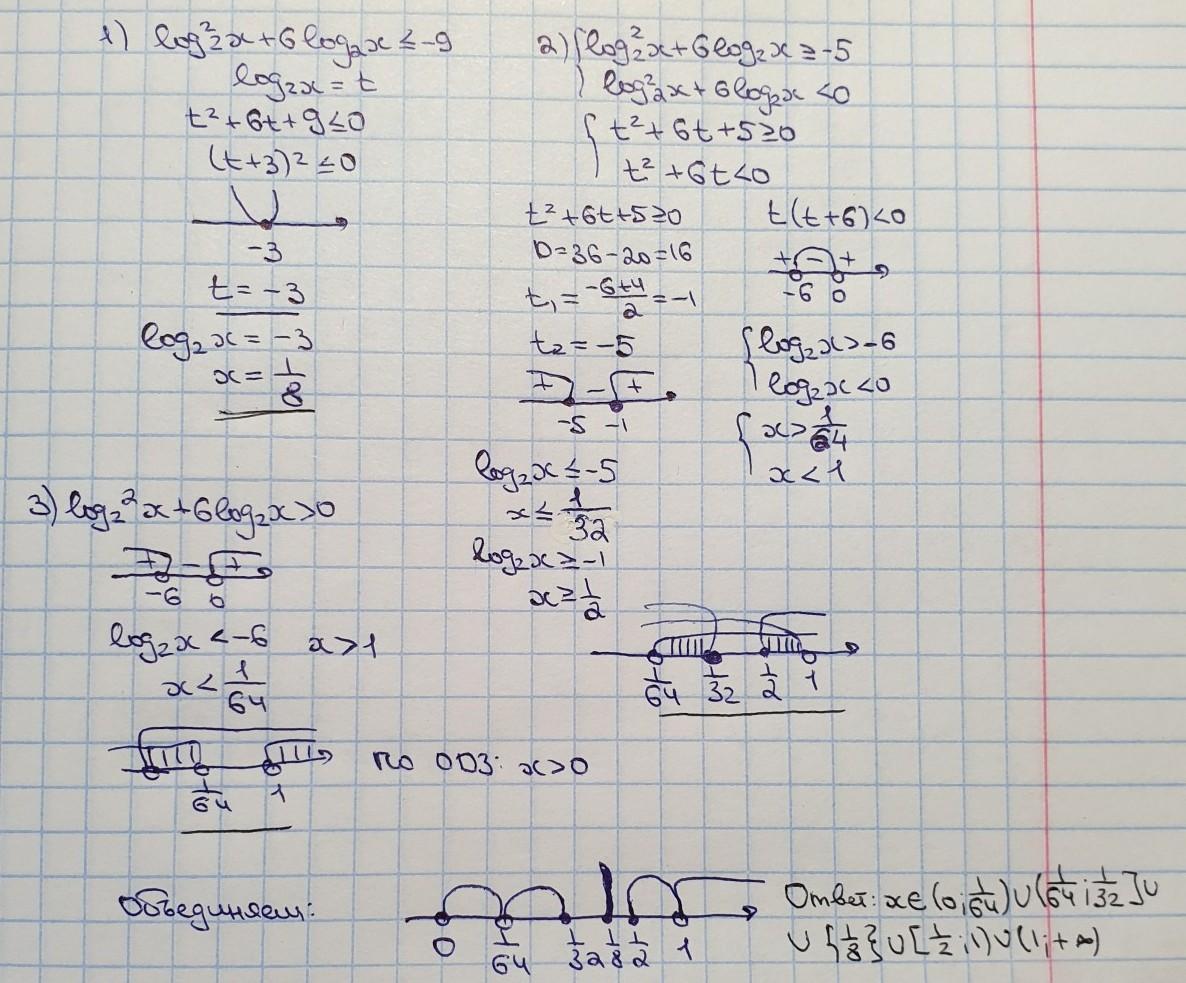 1) log₂²x + 6log₂x ≤ -9
log₂x = t
t² + 6t + 9 ≤ 0
(t+3)² ≤ 0
-3
t = -3
log₂x = -3
x = 1/8
2) { log₂²x + 6log₂x ≥ -5
log₂²x + 6log₂x < 0
{ t² + 6t + 5 ≥ 0
t² + 6t < 0
t² + 6t + 5 ≥ 0
D = 36 - 20 = 16
t₁ = (-6+4)/2 = -1
t₂ = -5
+ - +
-5 -1
log₂x ≤ -5
x ≤ 1/32
log₂x ≥ -1
x ≥ 1/2
t(t+6) < 0
+ - +
-6 0
{ log₂x > -6
log₂x < 0
{ x > 1/64
x < 1
1/64 1/32 1/2 1
3) log₂²x + 6log₂x > 0
+ - +
-6 0
log₂x < -6 x > 1
x < 1/64
1/64 1
по ОДЗ: x > 0
Объединяем:
0 1/64 1/32 1/8 1/2 1
Ответ: x ∈ (0; 1/64) ∪ (1/64; 1/32] ∪
∪ {1/8} ∪ [1/2; 1) ∪ (1; +∞)